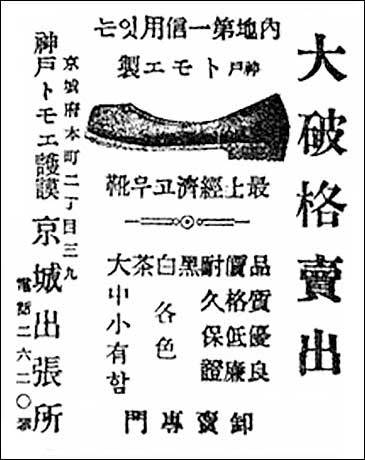 大破格賣出
內地第一信用잇는
神戶トモエ製
最上經濟고무靴
品質優良
價格低廉
耐久保證
黑白茶
各色
大中小有함
卸賣專門
京城府本町二丁目三九
神戶トモエ護謨京城出張所
電話二六二〇番